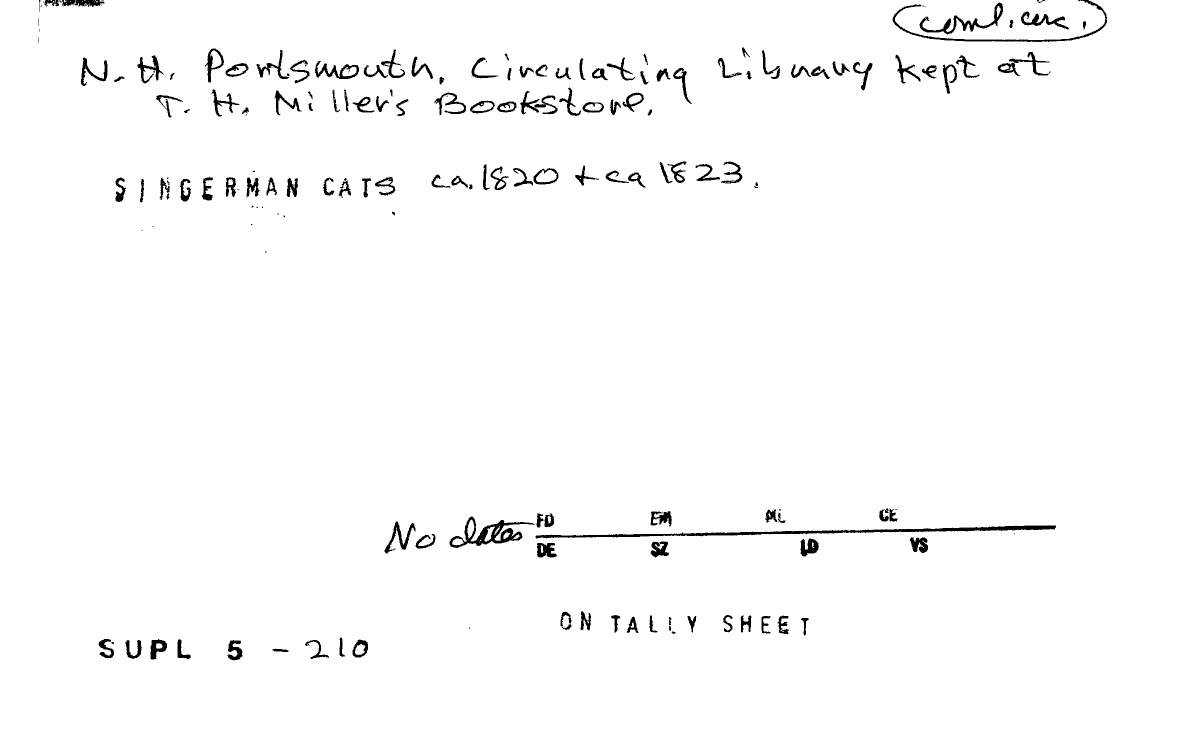 coml. circ.
N. H. Portsmouth. Circulating Library Kept at
T. H. Miller's Bookstore.
SINGERMAN CATS ca. 1820 + ca 1823.
No dates
FD EM ML CE
DE SZ LD VS
ON TALLY SHEET
SUPL 5 - 210